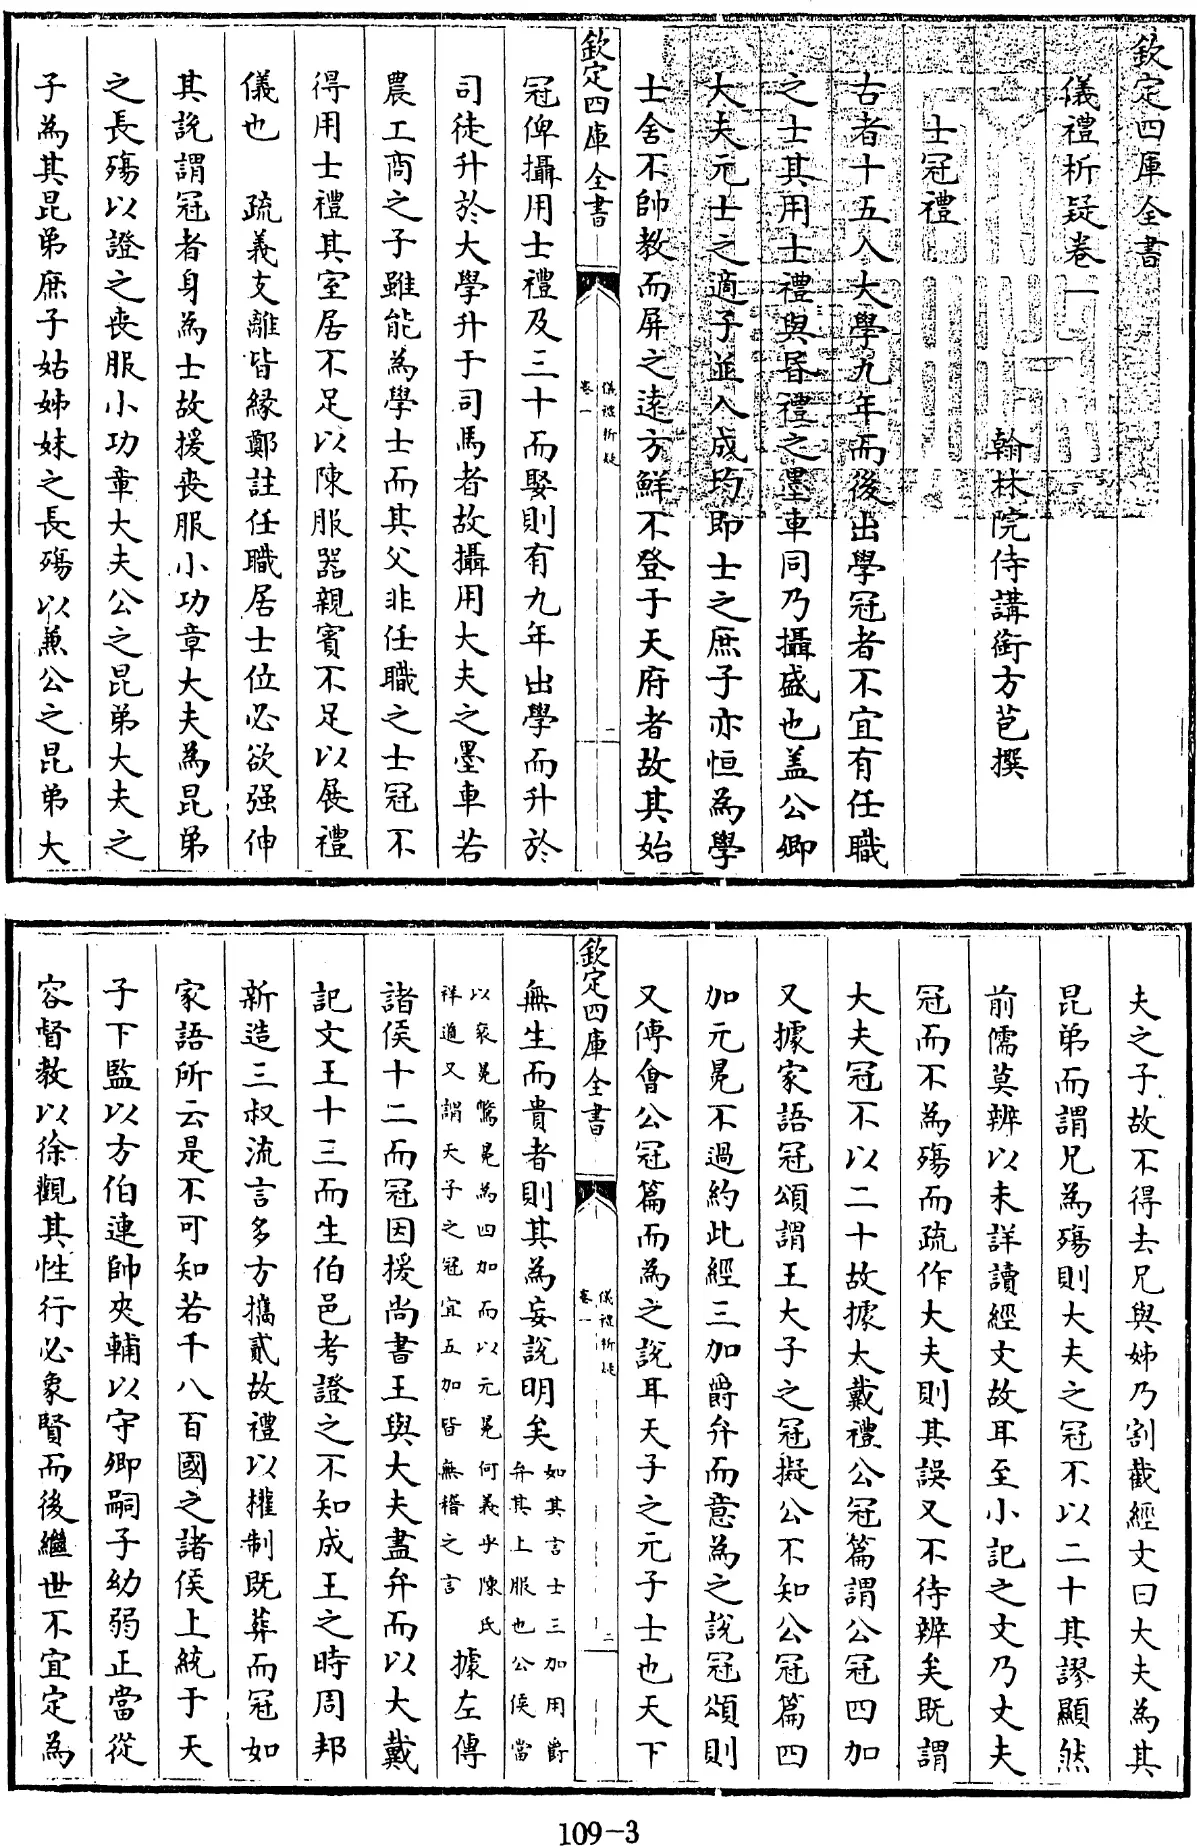 欽定四庫全書
儀禮析疑卷一
翰林院侍講銜方苞撰
士冠禮
古者十五入大學九年而後出學冠者不宜有任職
之士其用士禮與昏禮之墨車同乃攝盛也盖公卿
大夫元士之適子並入成均即士之庶子亦恒為學
士舍不帥教而屏之遠方鮮不登于天府者故其始
欽定四庫全書
儀禮析疑
卷一
二
冠俾攝用士禮及三十而娶則有九年出學而升於
司徒升於大學升于司馬者故攝用大夫之墨車若
農工商之子雖能為學士而其父非任職之士冠不
得用士禮其室居不足以陳服器親賓不足以展禮
儀也　疏義支離皆緣鄭註任職居士位必欲强伸
其說謂冠者身為士故援喪服小功章大夫為昆弟
之長殤以證之喪服小功章大夫公之昆弟大夫之
子為其昆弟庶子姑姊妹之長殤以兼公之昆弟大
夫之子故不得去兄與姊乃割截經文曰大夫為其
昆弟而謂兄為殤則大夫之冠不以二十其謬顯然
前儒莫辨以未詳讀經文故耳至小記之文乃丈夫
冠而不為殤而疏作大夫則其誤又不待辨矣既謂
大夫冠不以二十故據大戴禮公冠篇謂公冠四加
又據家語冠頌謂王大子之冠擬公不知公冠篇四
加元冕不過約此經三加爵弁而意為之說冠頌則
又傅會公冠篇而為之說耳天子之元子士也天下
欽定四庫全書
儀禮析疑
卷一
二
無生而貴者則其為妄說明矣如其言士三加用爵
弁其上服也公侯當
以衮冕驚冕為四加而以元冕何義乎陳氏
祥道又謂天子之冠宜五加皆無稽之言　據左傳
諸侯十二而冠因援尚書王與大夫盡弁而以大戴
記文王十三而生伯邑考證之不知成王之時周邦
新造三叔流言多方攜貳故禮以權制既葬而冠如
家語所云是不可知若千八百國之諸侯上統于天
子下監以方伯連帥夾輔以守卿嗣子幼弱正當從
容督教以徐觀其性行必象賢而後繼世不宜定為
109-3